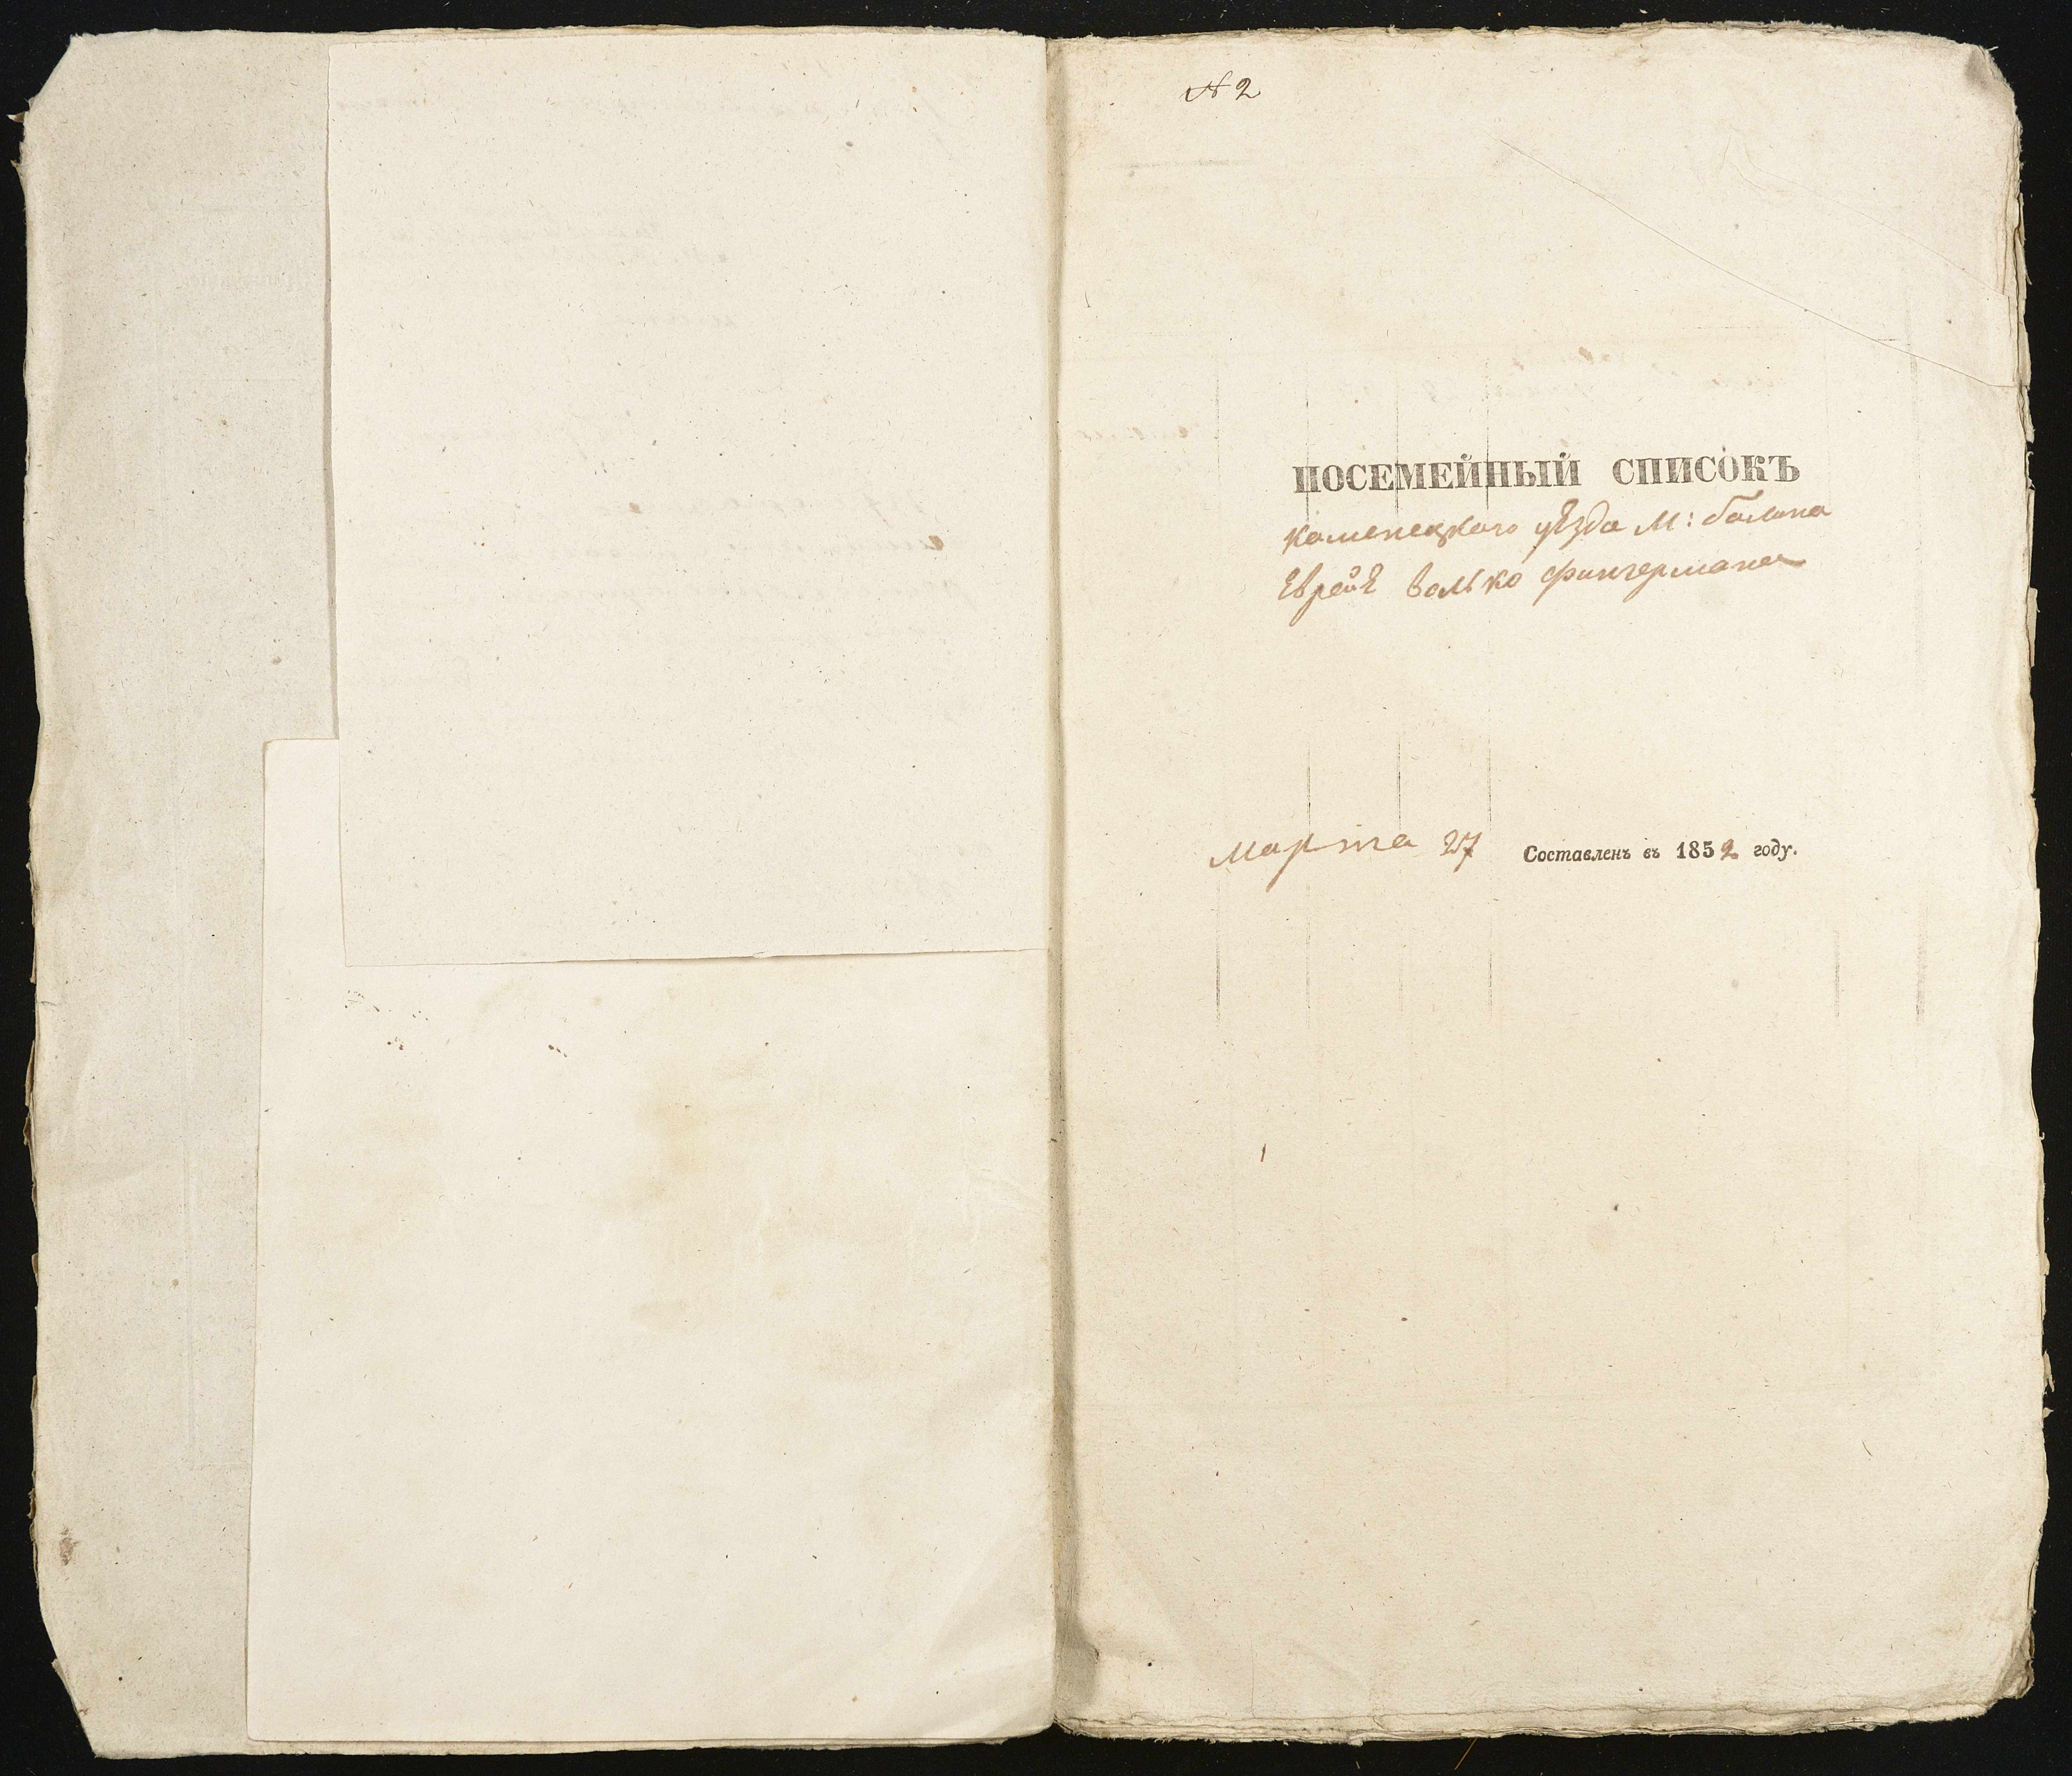 № 2
ПОСЕМЕЙНЫЙ СПИСОКЪ
каменецкого уѣзда М: балина
Еврей Волько Фингермана
марта 27 Составленъ въ 1852 году.